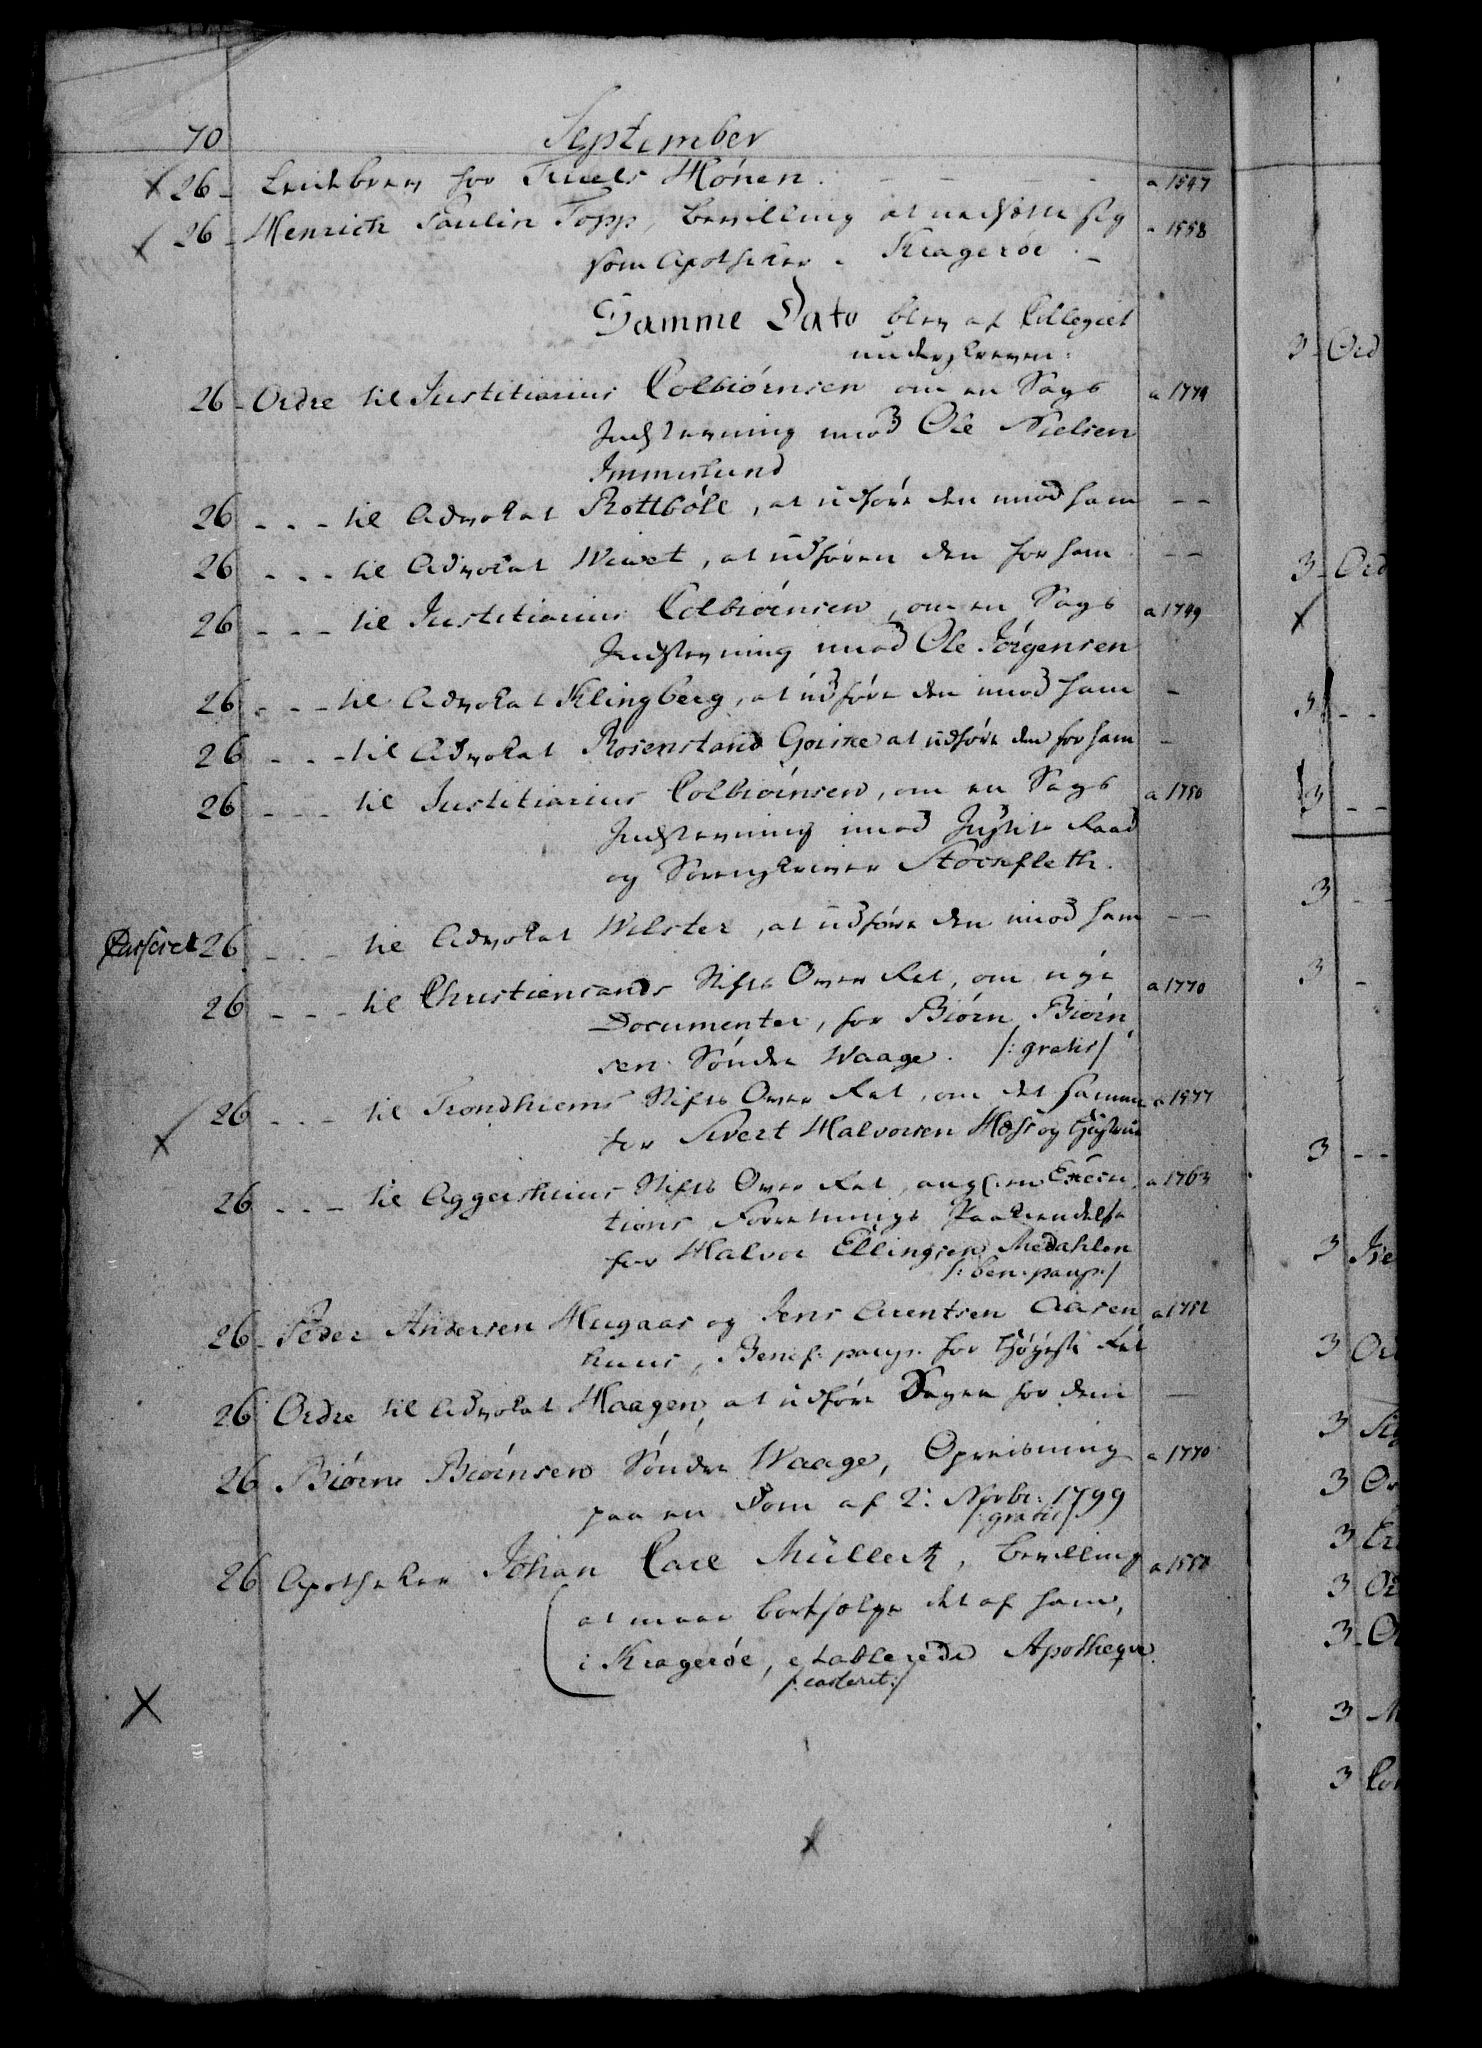 70 September
26 - Leidebrev for Truels Mönen. - - - a 1547
26 - Henrich Paulin Topp, Bevilling at nedsætte sig - 1558
som Apotheker i Krageröe. -
Samme Dato blev af Collegiet
underskreven:
26 - Ordre til Justitiarius Colbiörnsen om en Sags a 1774
Indstevning mod Ole Nielsen
26 - - - til Advokat Rottböll, at udföre den mod ham - -
26 - - - til Advokat Wivet, at udfören den for ham - -
26 - - - til Justitiarius Colbiörnsen, om en Sags a 1749
Indstevning imod Ole Jörgensen
26 - - - til Advokat Klingberg, at udföre den imod ham -
26 - - - til Advokat Rosenstand Goiske at udföre den for ham -
26 - - - til Justitiarius Colbiörnsen, om en Sags a 1750
Indstevning imod Justits Raad
og Sorenskriver Stockfleth.
Casseret 26 - - - til Advokat Wilster, at udföre den imod ham - -
26 - - - til Christiansands Stifts Over Ret, om nye a 1770
Documenter, for Biörn Biörn
sen Söndre Waage. /: gratis /
26 - - - til Trondhiems Stifts Over Ret, om det samme a 1577
for Sivert Halvorsen Moss og Hustrue
26 - - - til Aggershuus Stifts Over Ret, ang: en Execu a 1763
tions Forretnings Paakiendelse
for Halvor Ellingsen Medahlen
/: ben: paup: /
26 - Peder Andersen Hugaas og Jens Arentsen Aasen a 1752
huus, Benef: paup: for Höyeste Ret
26 Ordre til Advokat Haagen, at udföre Sagen for dem -
26 Biörn Biörnsen Söndre Waage, Opreisning a 1770
paa en Dom af 2: Novbr: 1799
/: gratis /
26 Apotheker Johan Carl Müllertz, Bevilling a 1558
at maae bortsælge det af ham,
i Krageröe, etablerede Apotheque.
/: casseret: /
3 - Ord
3 - Ord
3 - -
3 - -
3 - -
3 -
3 - -
3
3 Ord
3
3
3
3
3 -
3
3